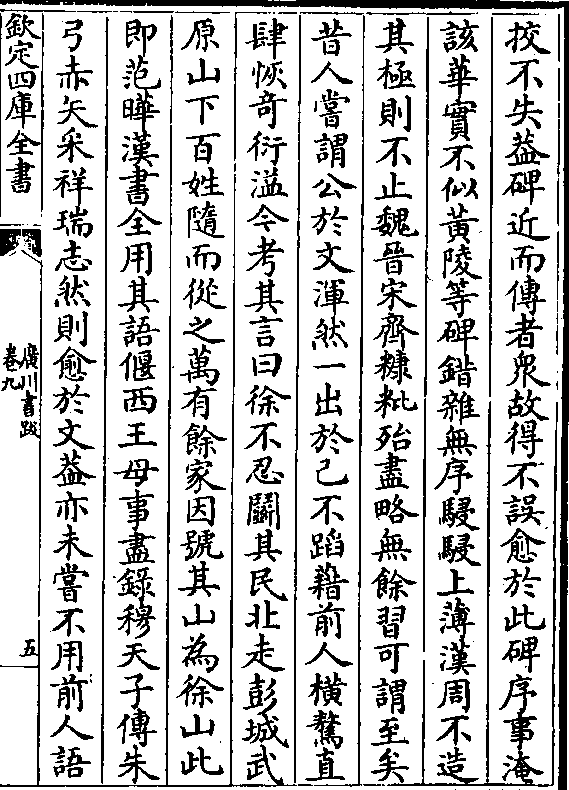 挍不失葢碑近而傳者衆故得不誤愈於此碑序事淹
該華實不似黄陵等碑錯雜無序駸駸上薄漢周不造
其極則不止魏晉宋齊糠粃殆盡略無餘習可謂至矣
昔人嘗謂公於文渾然一出於己不蹈藉前人横騖直
肆恢竒衍溢今考其言曰徐不忍鬭其民北走彭城武
原山下百姓隨而從之萬有餘家因號其山為徐山此
即范曄漢書全用其語偃西王母事盡錄穆天子傳朱
弓赤矢采祥瑞志然則愈於文葢亦未嘗不用前人語
欽定四庫全書
廣川書跋
卷九
五